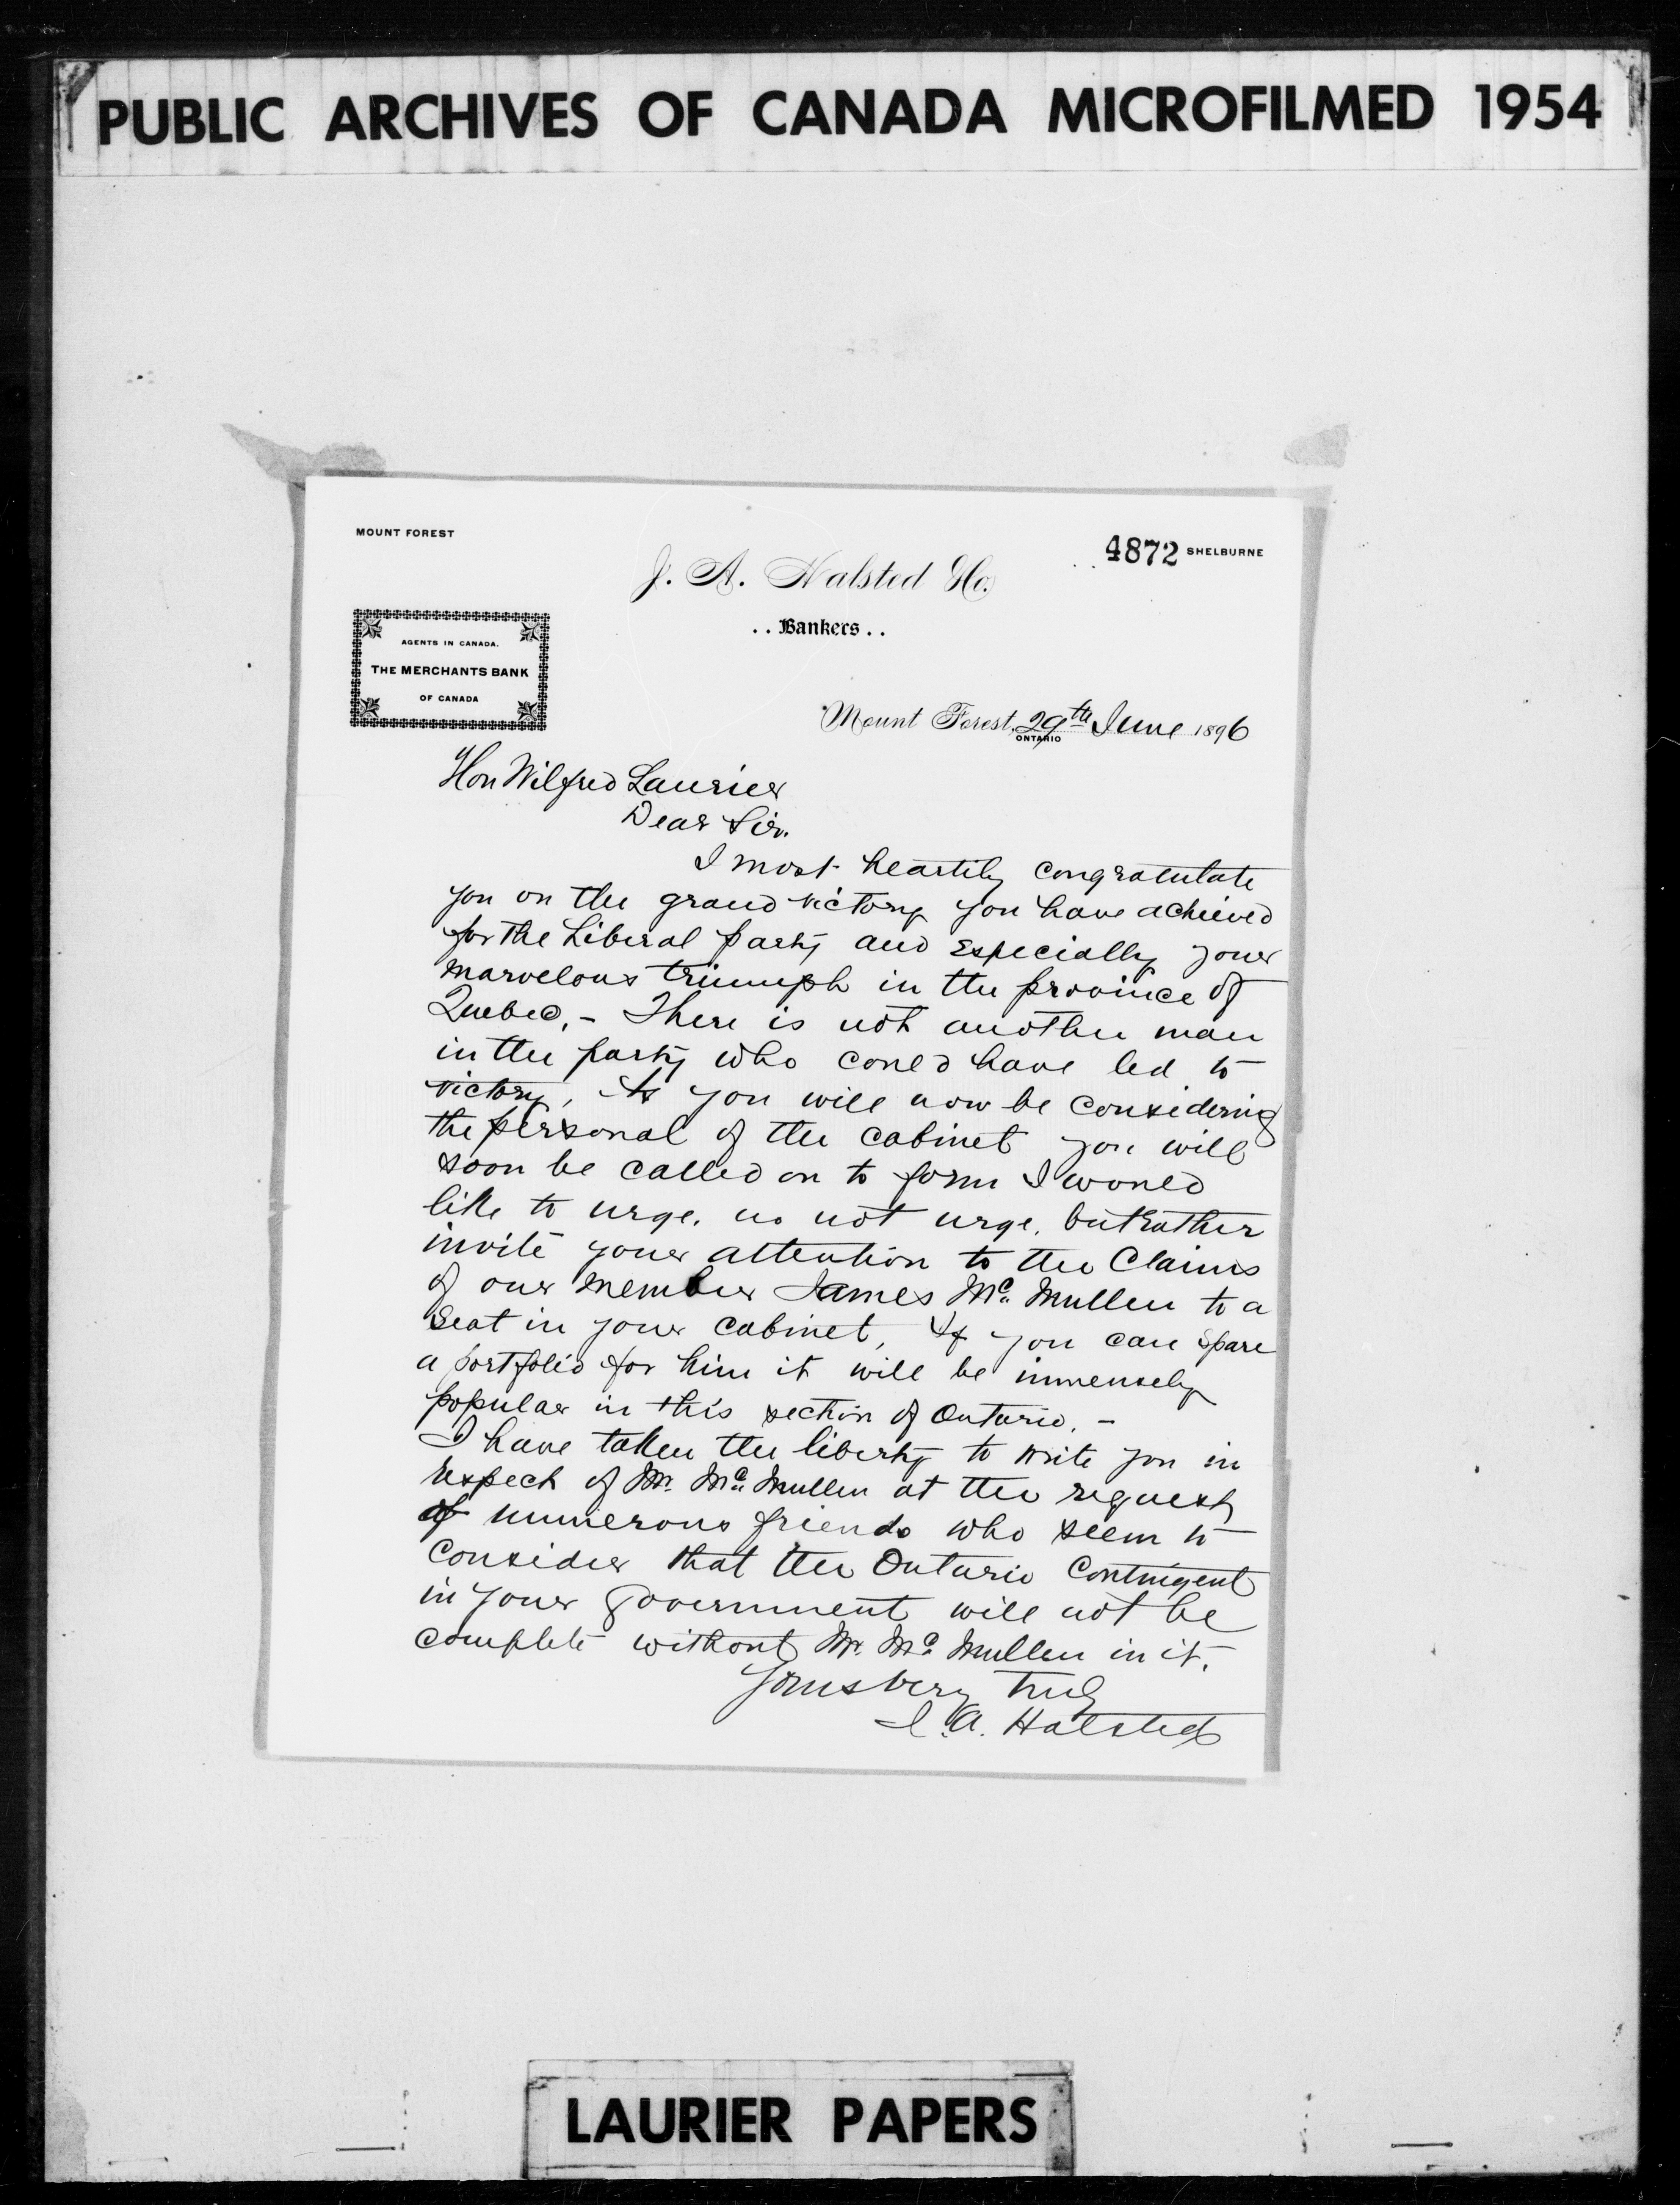 PUBLIC ARCHIVES OF CANADA MICROFILMED 1954
MOUNT FOREST
4872 SHELBURNE
J. A. Halsted & Co.
.. Bankers ..
AGENTS IN CANADA.
THE MERCHANTS BANK
OF CANADA
Mount Forest, 29th June 1896
ONTARIO
Hon Wilfred Laurier
Dear Sir.
I most heartily congratulate
you on the grand victory you have achieved
for the Liberal party and especially your
marvelous triumph in the province of
Quebec. - There is not another man
in the party who could have led to
victory, As you will now be considering
the personal of the cabinet you will
soon be called on to form I would
like to urge, no not urge, but rather
invite your attention to the Claims
of our member James Mc Mullen to a
seat in your cabinet, If you can spare
a portfolio for him it will be immensely
popular in this section of Ontario. -
I have taken the liberty to write you in
respect of Mr. Mc Mullen at the request
of numerous friends who seem to
consider that the Ontario Contingent
in your Government will not be
complete without Mr. Mc Mullen in it.
Yours very truly
J. A. Halsted
LAURIER PAPERS